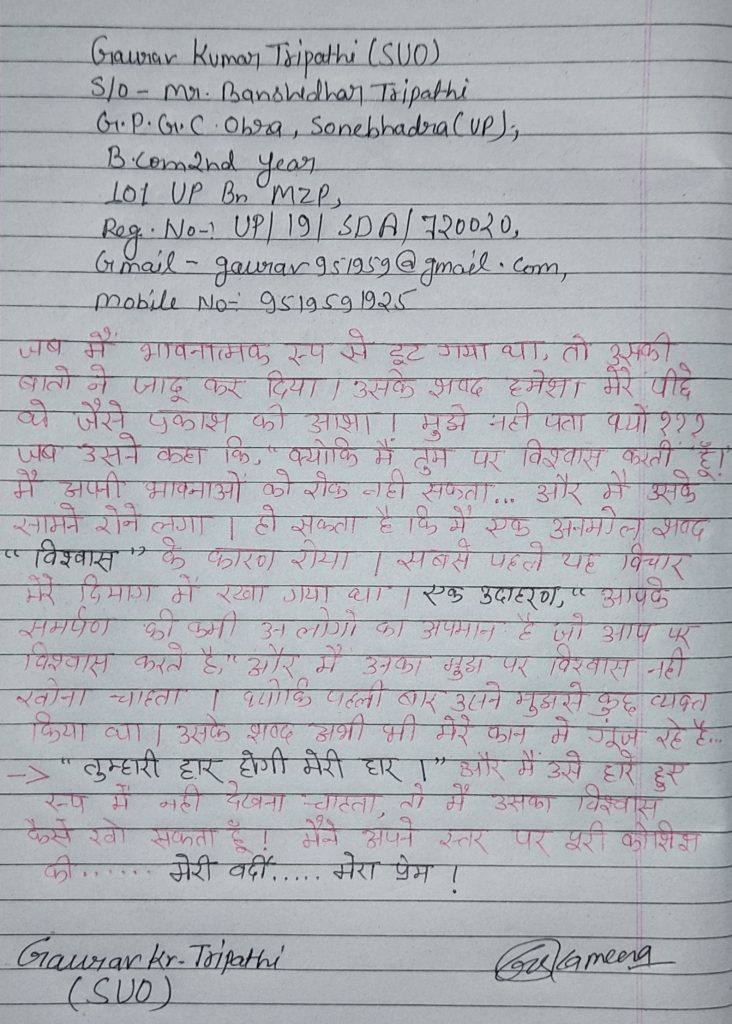 Gaurav Kumar Tripathi (SUO)
S/O - Mr. Banshidhar Tripathi
G.P.G.C. Obra, Sonebhadra (UP);
B.com 2nd year
101 UP Bn MZP,
Reg. No-: UP/19/SDA/720020,
Gmail - gaurav951959@gmail.com,
Mobile No-: 9519591925
जब मैं भावनात्मक रूप से टूट गया था, तो उसकी
बातो ने जादू कर दिया। उसके शब्द हमेशा मेरे पीछे
थे जैसे प्रकाश की आशा। मुझे नही पता क्यों???
जब उसने कहा कि, "क्योकि मैं तुम पर विश्वास करती हूँ!
मैं अपनी भावनाओं को रोक नही सकता... और मैं उसके
सामने रोने लगा। हो सकता है कि मैं एक अनमोल शब्द
"विश्वास" के कारण रोया। सबसे पहले यह विचार
मेरे दिमाग में रखा गया था। एक उदाहरण, "आपके
समर्पण की कमी उन लोगो का अपमान है जो आप पर
विश्वास करते है," और मैं उनका मुझ पर विश्वास नही
खोना चाहता। क्योकि पहली बार उसने मुझसे कुछ व्यक्त
किया था। उसके शब्द अभी भी मेरे कान मे गूंज रहे है...
-> "तुम्हारी हार होगी मेरी हार।" और मैं उसे हारे हुए
रूप में नही देखना चाहता, तो मैं उसका विश्वास
कैसे खो सकता हूँ! मैंने अपने स्तर पर पूरी कोशिश
की....... मेरी वर्दी..... मेरा प्रेम!
Gaurav Kr. Tripathi
(SUO)